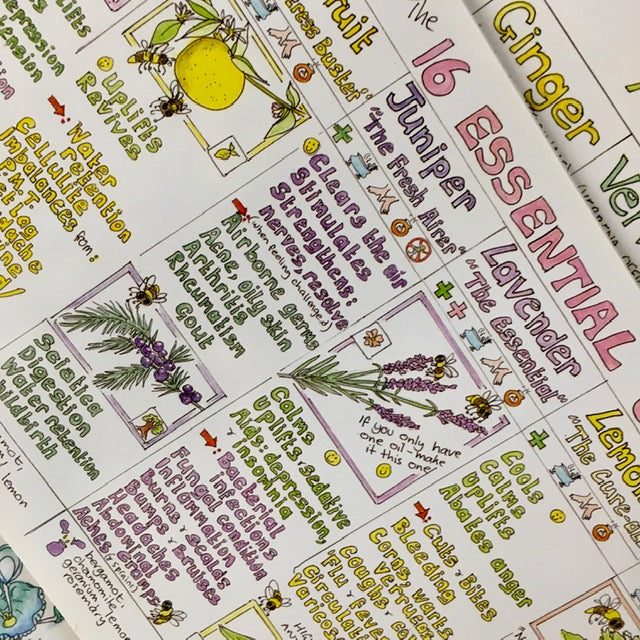 The
16 ESSENTIAL
Ginger
Fruit
Stress Buster"
Uplifts
Revives
Water
retention
Cellulite
Imbalances
P.M.T.
Juniper
"The Fresh Airer"
Clears the air
Stimulates
Strengthens:
nerves, resolve
(when feeling challenged)
Airborne germs
Acne, oily skin
Arthritis
Rheumatism
Gout
Sciatica
Digestion
Water retention
Childbirth
Lavender
"The Essential"
If you only have
one oil-make
it this one
Calms
Uplifts, sedative
Aids: depression,
insomnia
Bacterial
infections
Fungal condition
Inflammation
Burns & scalds
Bumps & bruises
Headaches
Abdominal
cramps
Aches, (sprains)
bergamot,
chamomile,
geranium, lemon
rosemary
Lemon
"The Cure-all
Cools
Calms
Uplifts
Abates anger
Cuts & Bites
Bleeding
Corns, warts
verrucas
Coughs &
'Flu & fever